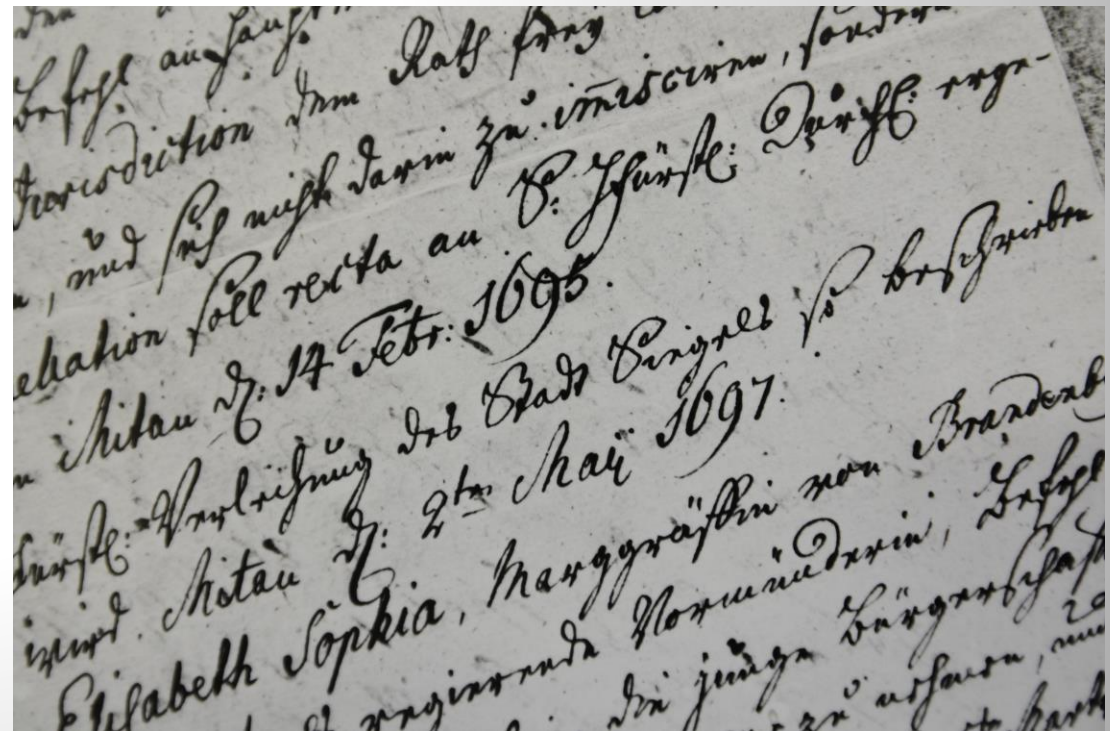 den
Befehl an Haupt
Jurisdiction dem Rath frey
, und sich nicht darin zu im̄isciren, sondern
ellation soll recta an S: Hfürstl: Durchl: erge-
Mitau d: 14 Febr: 1695.
Fürstl: Verleihung des Stadt Siegels so beschrieben
wird. Mitau d: 2ten Maÿ 1697.
Elisabeth Sophia, Marggräffin von Brandenb
regierende Vormünderin, Befehl
die junge Bürgerschaft
zu nehmen, und